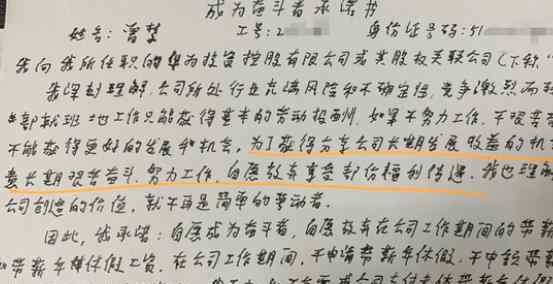 成为奋斗者承诺书
姓名：曾梦 工号：2 身份证号码：51
我向我所任职的华为投资控股有限公司或其股权关联公司（下称，"
我深刻理解，公司所处行业充满风险和不确定性，竞争激烈而残
部就班地工作只能获得基本的劳动报酬，如果不努力工作，不艰苦奋
不能获得更好的发展和机会，为了获得分享公司长期发展收益的机
要长期艰苦奋斗、努力工作，自愿放弃享受部份福利待遇。我也理解
公司创造的价值，就不再是简单的劳动者。
因此，我承诺：自愿成为奋斗者，自愿放弃在公司工作期间的带薪
和带薪年休假工资。在公司工作期间，不申请带薪年休假，不申领带薪